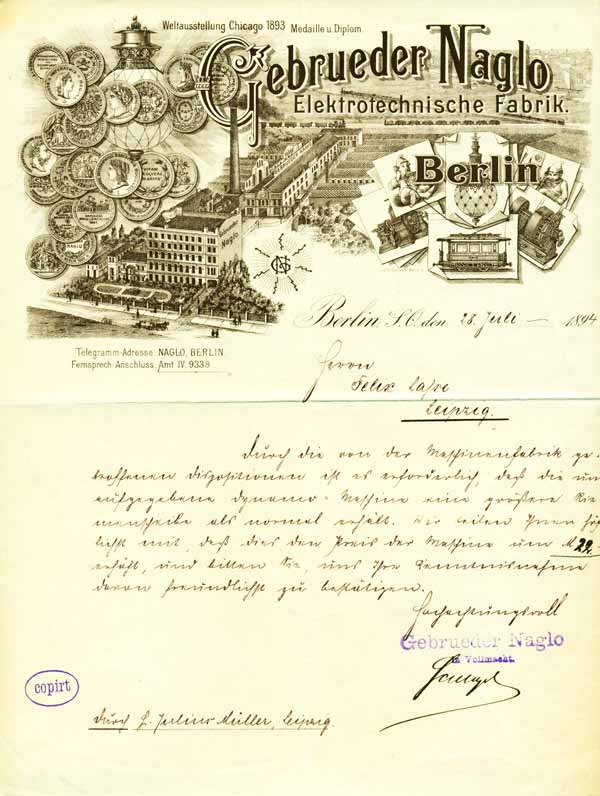 Weltausstellung Chicago 1893 Medaille u. Diplom.
Gebrueder Naglo
Elektrotechnische Fabrik.
Berlin
Naglo
Berlin S.O. den 28. Juli 1894
Telegramm-Adresse: NAGLO, BERLIN.
Fernsprech-Anschluss: Amt IV. 9338
Herrn
Felix
Leipzig.
Durch die von der Maschinenfabrik ge-
troffenen Dispositionen ist es erforderlich, daß die uns
aufgegebene Dynamo-Maschine eine größere Rie-
menscheibe als normal erhält. Wir teilen Ihnen höf-
lichst mit, daß dies den Preis der Maschine um M 29.-
erhöht, und bitten Sie, uns Ihre Kenntnisnahme
davon freundlichst zu bestätigen.
Hochachtungsvoll
Gebrueder Naglo
in Vollmacht.
copirt
durch H. Julius Müller, Leipzig.